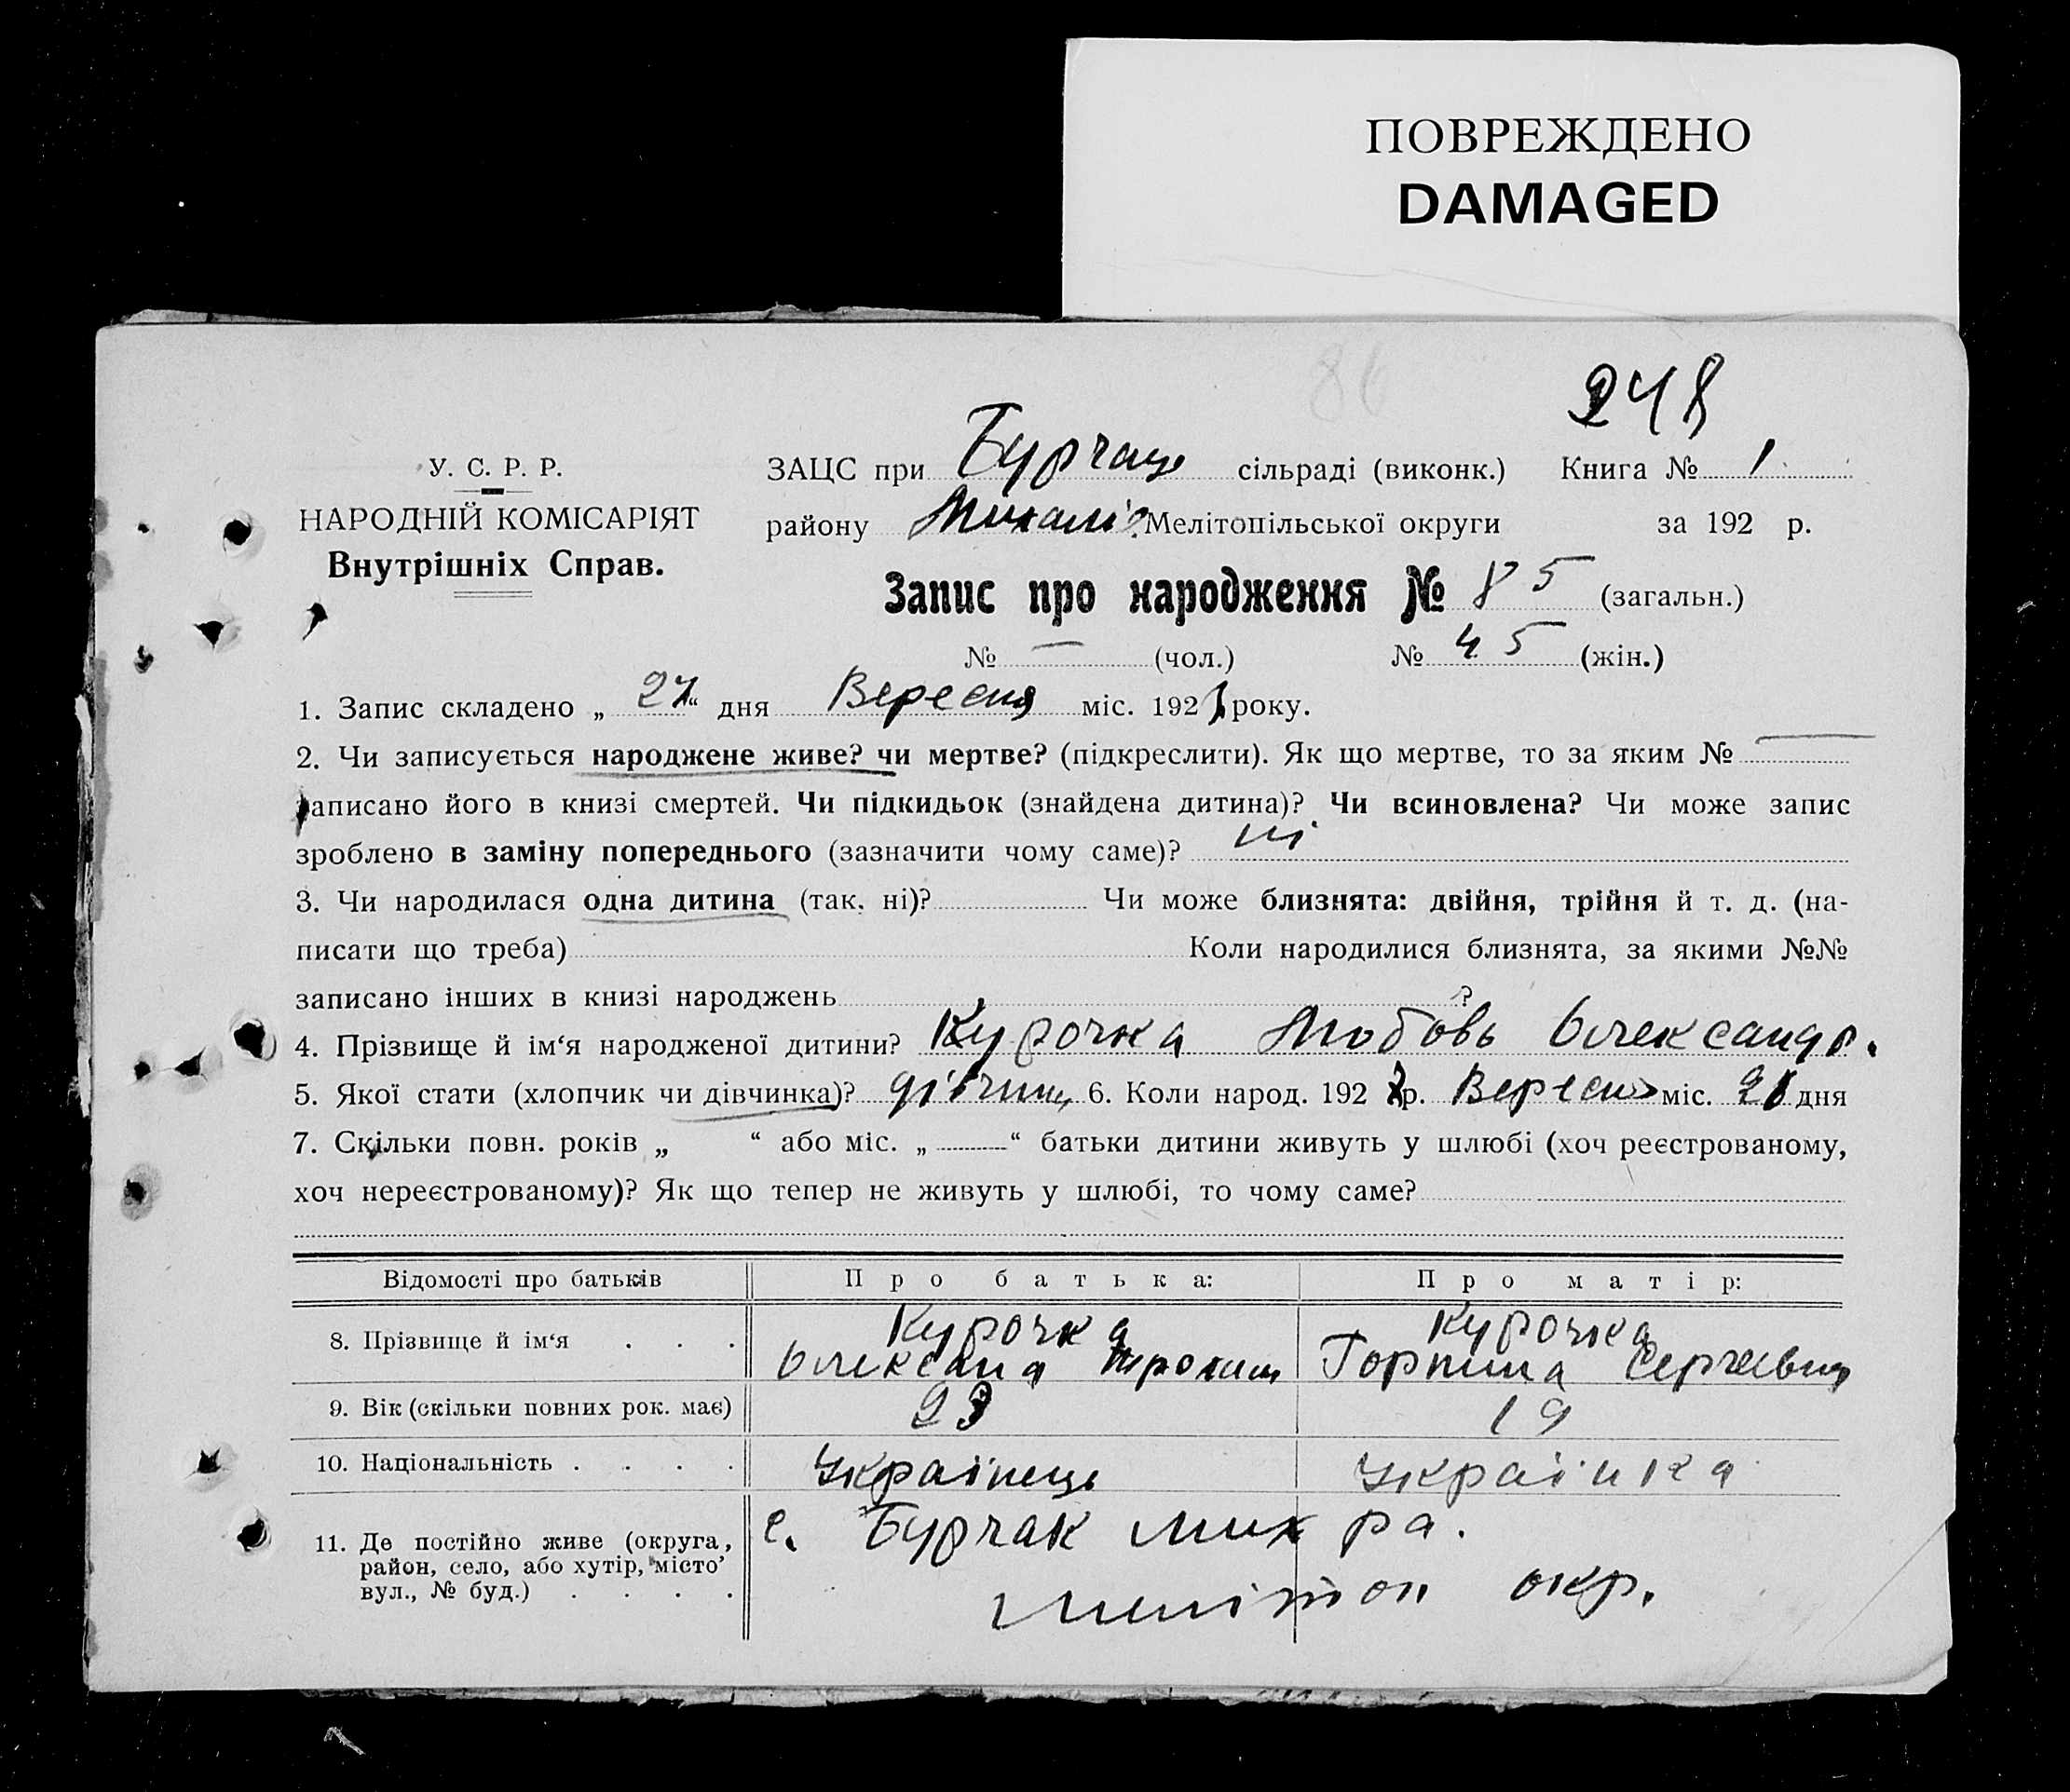 ПОВРЕЖДЕНО
DAMAGED
86
248
У. С. Р. Р.
НАРОДНІЙ КОМІСАРІЯТ
Внутрішніх Справ.
ЗАЦС при Бурчаць сільраді (виконк.) Книга № 1
району Михайлі Мелітопільської округи за 192 р.
Запис про народження № 85 (загальн.)
№ — (чол.) № 45 (жін.)
1. Запис складено „ 27 “ дня Вересня міс. 192 року.
2. Чи записується народжене живе? чи мертве? (підкреслити). Як що мертве, то за яким № —
записано його в книзі смертей. Чи підкидьок (знайдена дитина)? Чи всиновлена? Чи може запис
зроблено в заміну попереднього (зазначити чому саме)? ні
3. Чи народилася одна дитина (так, ні)? Чи може близнята: двійня, трійня й т. д. (на-
писати що треба) Коли народилися близнята, за якими №№
записано інших в книзі народжень ?
4. Прізвище й ім‘я народженої дитини? Курочка Любовь Олександр.
5. Якої стати (хлопчик чи дівчинка)? дівчина 6. Коли народ. 192 р. Вересня міс. 21 дня
7. Скільки повн. років „ “ або міс. „ “ батьки дитини живуть у шлюбі (хоч реєстрованому,
хоч нереєстрованому)? Як що тепер не живуть у шлюбі, то чому саме?
Відомості про батьків Про батька: Про матір:
8. Прізвище й ім‘я . . . Курочка Курочка
Олександ Горпина Сергеевна
9. Вік (скільки повних рок. має) 23 19
10. Національність . . . . Українець Українка
11. Де постійно живе (округа, район, село, або хутір, місто’ вул., № буд.) . . . . с. Бурчак Мих ра.
Мелітоп окр.